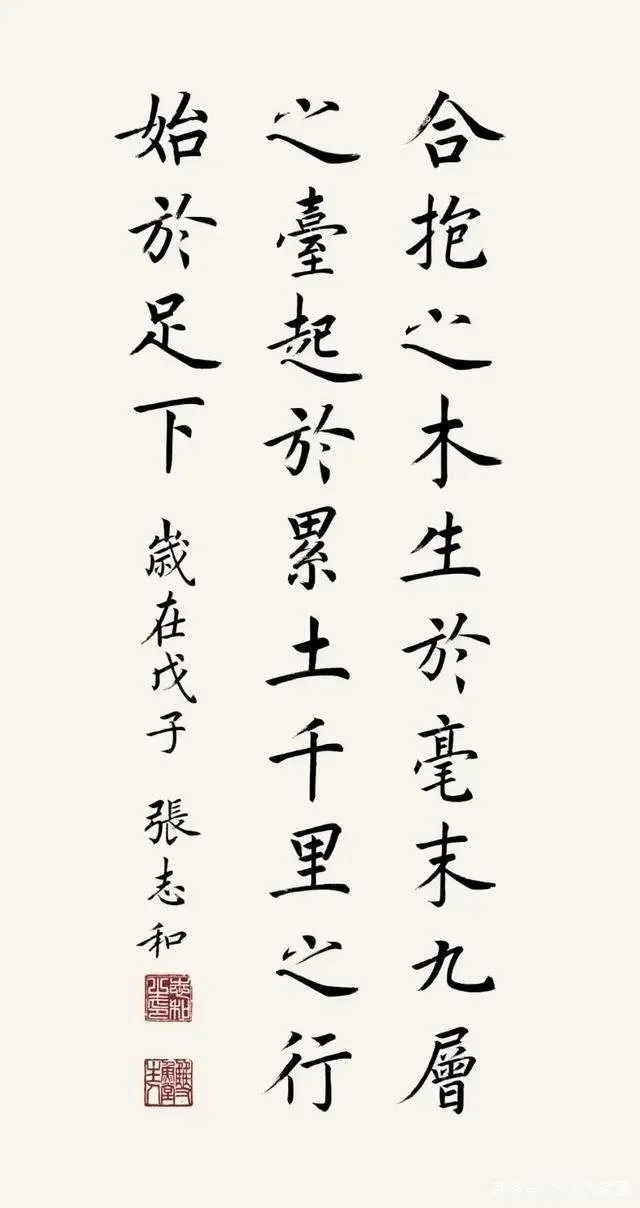 合抱之木生於毫末九層
之臺起於累土千里之行
始於足下 歲在戊子 張志和